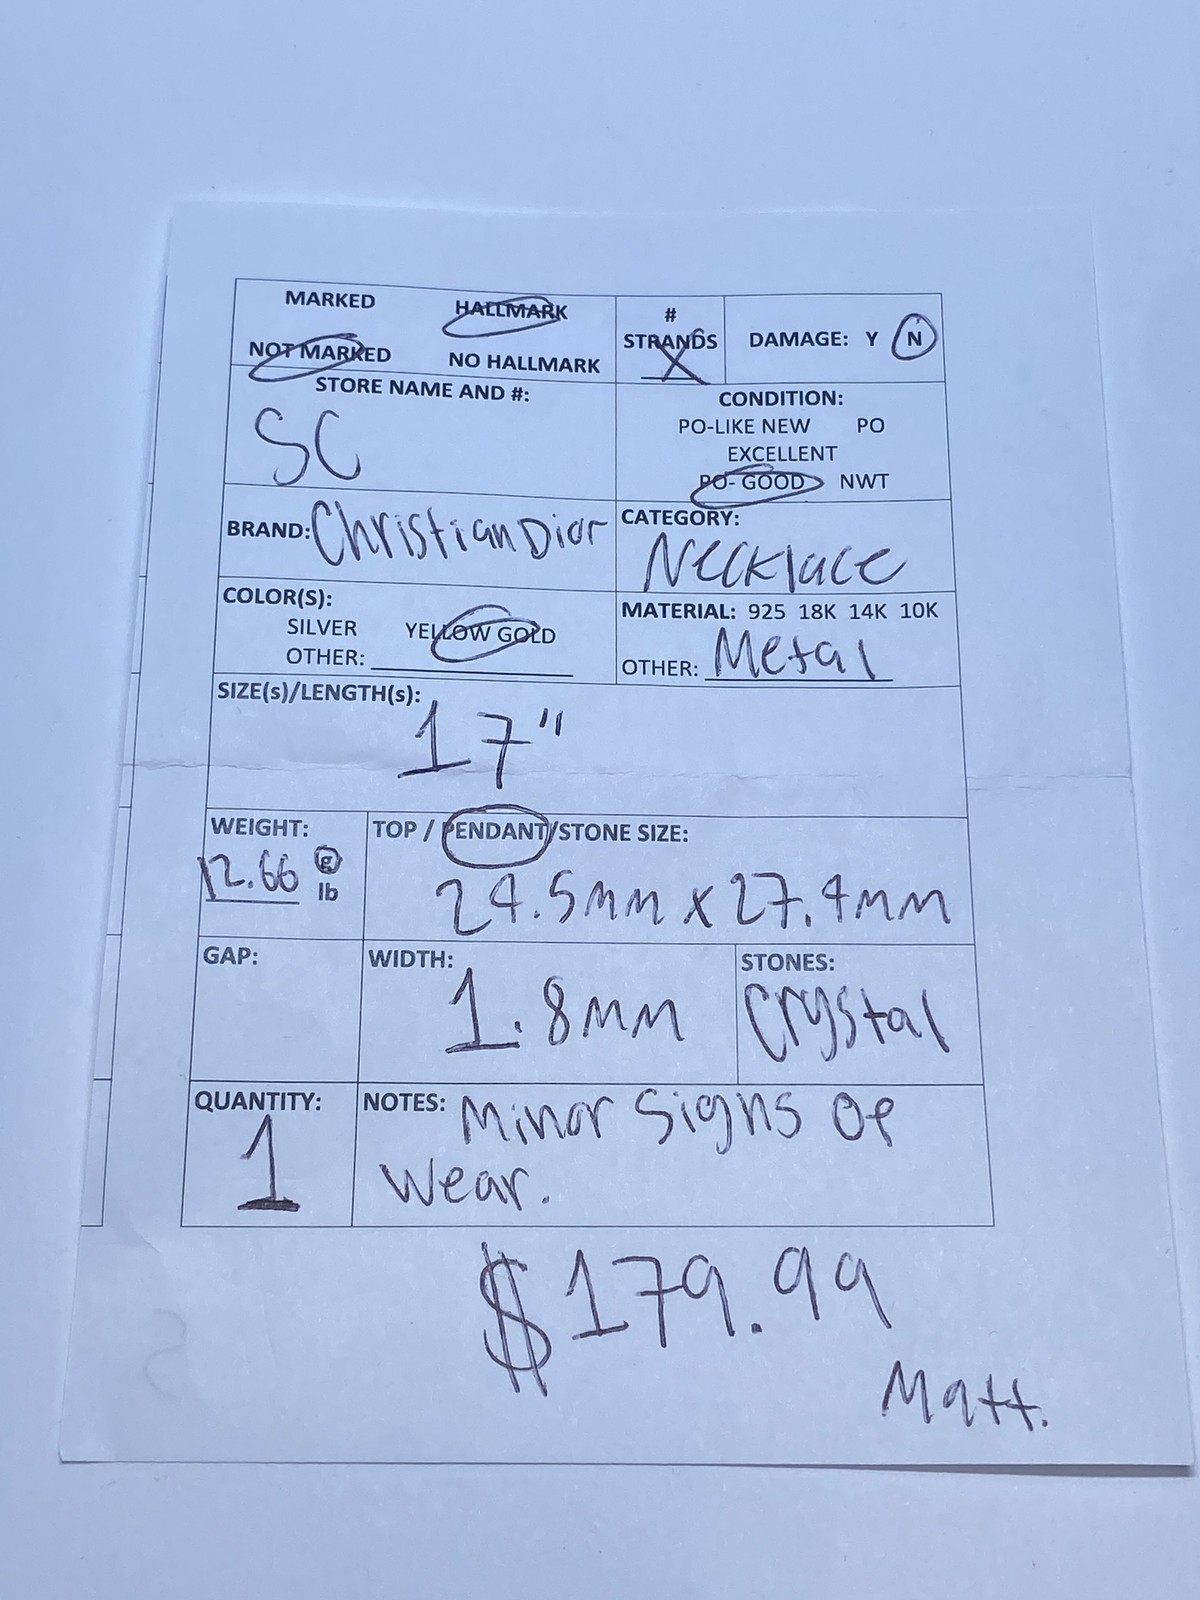 MARKED HALLMARK
NOT MARKED NO HALLMARK
#
STRANDS
X
DAMAGE: Y N
STORE NAME AND #:
SC
CONDITION:
PO-LIKE NEW PO
EXCELLENT
PO- GOOD NWT
BRAND: Christian Dior
CATEGORY:
Necklace
COLOR(S):
SILVER YELLOW GOLD
OTHER:
MATERIAL: 925 18K 14K 10K
OTHER: Metal
SIZE(s)/LENGTH(s):
17"
WEIGHT:
12.66 g
lb
TOP / PENDANT/STONE SIZE:
24.5mm x 27.4mm
GAP:
WIDTH:
1.8mm
STONES:
Crystal
QUANTITY:
1
NOTES: Minor Signs OF
Wear.
$179.99
Matt.